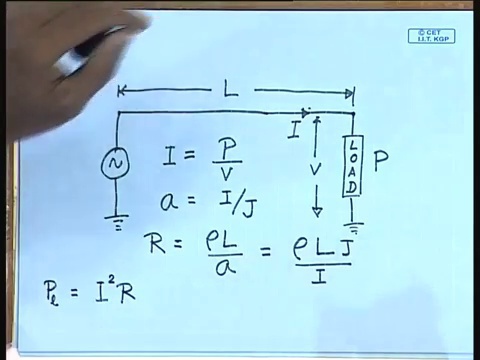 © CET
I.I.T. KGP
L
I
V
LOAD
P
I = P/V
a = I/J
R = ρL/a = ρLJ/I
P_l = I²R